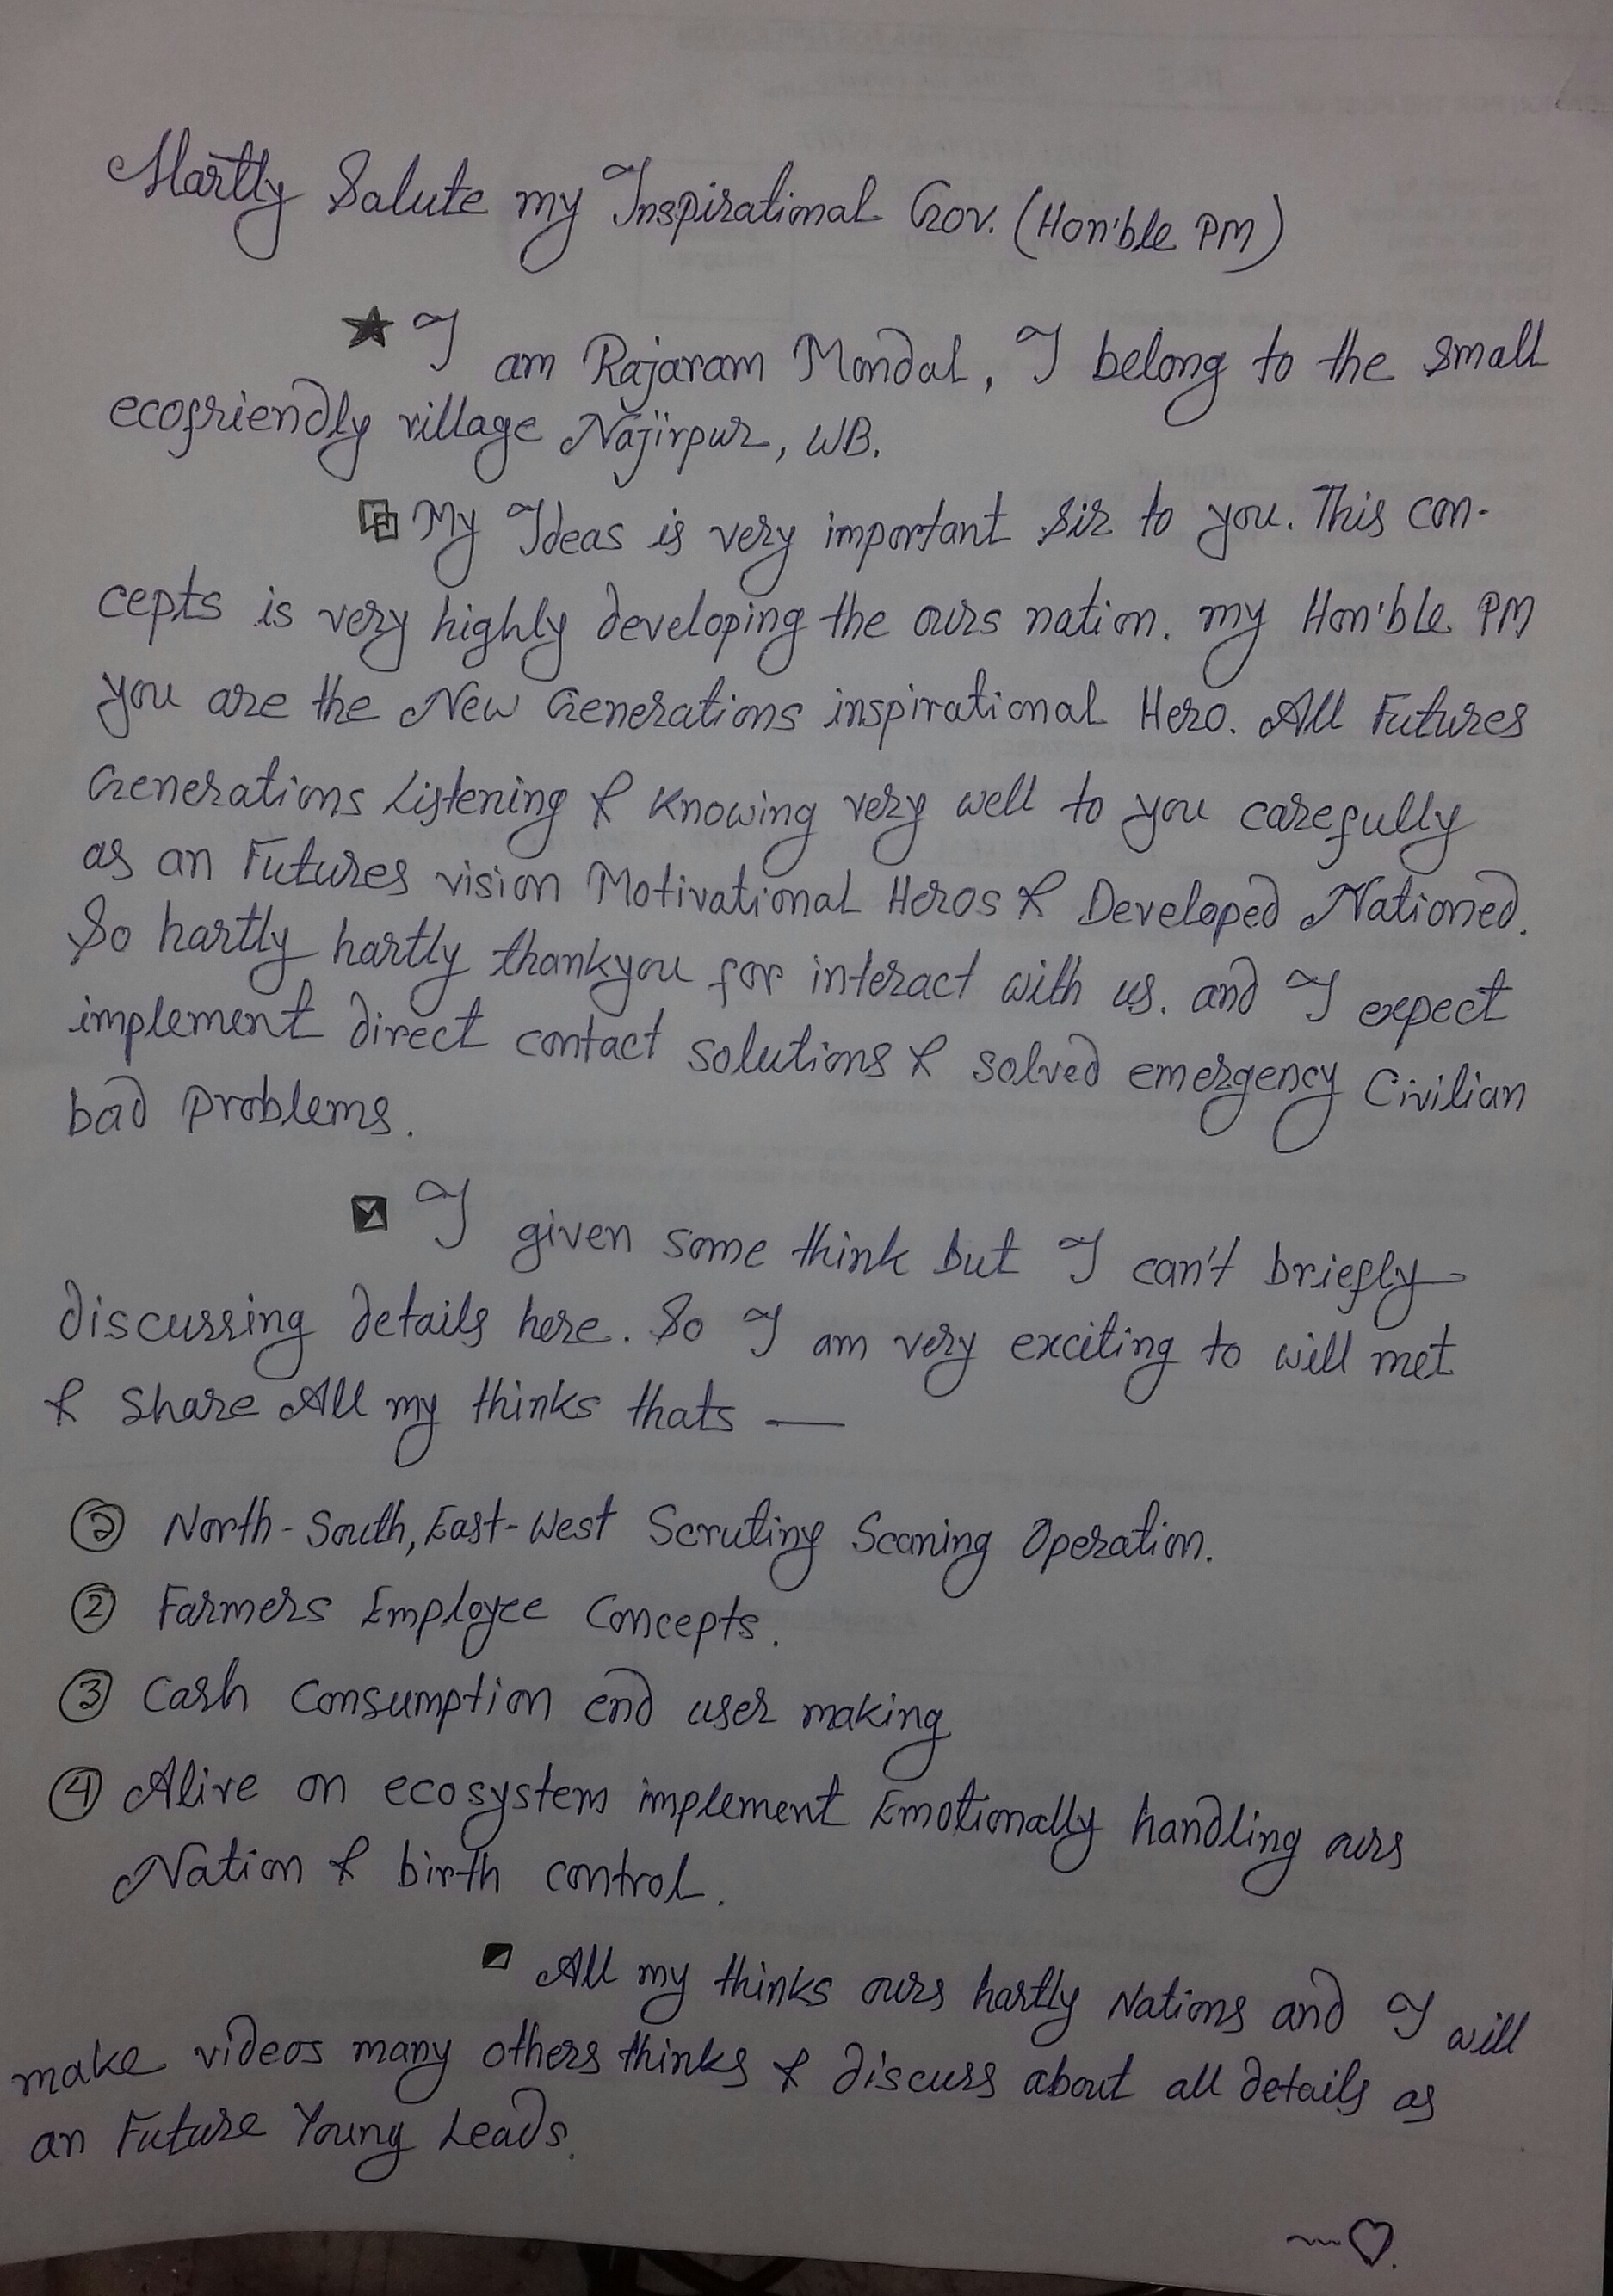 Hartly Salute my Inspirational Gov. (Hon'ble PM)
★ I am Rajaram Mondal, I belong to the small
ecofriendly village Najirpur, WB.
My Ideas is very important sir to you. This con-
cepts is very highly developing the ours nation. my Hon'ble PM
you are the New Generations inspirational Hero. All Futures
Generations Listening & Knowing very well to you carefully
as an Futures vision Motivational Heros & Developed Nationed.
So hartly hartly thankyou for interact with us. and I expect
implement direct contact solutions & solved emergency Civilian
bad problems.
I given some think but I can't briefly
discussing details here. So I am very exciting to will met
& share All my thinks thats —
North-South, East-West Scruting Scaning Operation.
② Farmers Employee Concepts.
③ Cash Consumption end user making
④ Alive on ecosystem implement Emotionally handling ours
Nation & birth control.
All my thinks ours hartly Nations and I will
make videos many others thinks & discuss about all details as
an Future Young Leads.